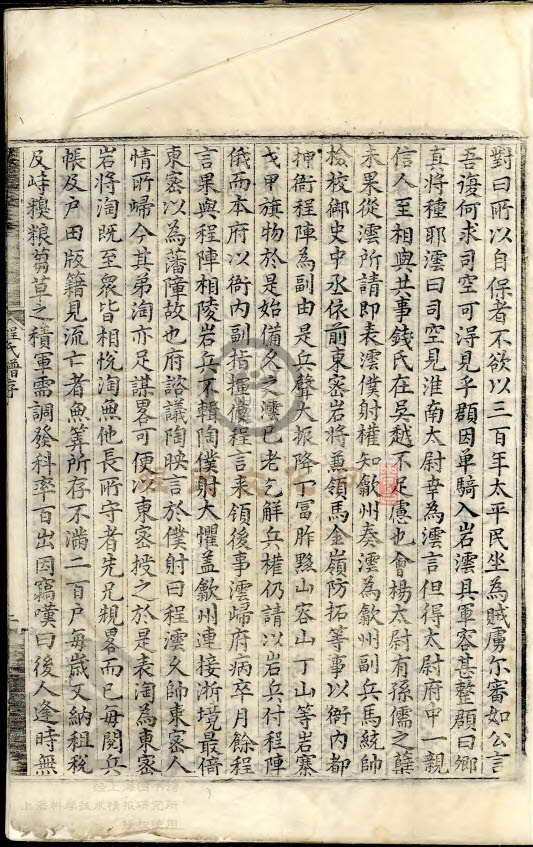 對曰所以自保者不欲以三百年太平民坐為賊虜尓審如公言
吾復何求司空可得見乎頵因單騎入岩澐具軍容甚整頵曰卿
真將種耶澐曰司空見淮南太尉幸為澐言但得太尉府中一親
信人至相與共事錢氏在吳越不足慮也會楊太尉有孫儒之孽
未果從澐所請即表澐僕射權知歙州奏澐為歙州副兵馬統帥
檢校御史中丞依前東密岩將兼領馬金嶺防拓等事以衙內都
押衙程陣為副由是兵聲大振降下冨昨黟山容山丁山等岩寨
戈甲旗物於是始備久之澐已老乞解兵權仍請以岩兵付程陣
俄而本府以衙內副指揮使程言来領後事澐歸府病卒月餘程
言果與程陣相陵岩兵不輯陶僕射大懼盖歙州連接浙境最倚
東密以為藩障故也府諮議陶映言於僕射曰程澐久帥東密人
情所歸今其弟淘亦足謀畧可便以東密授之於是表淘為東密
岩將淘既至衆皆相悅淘無他長所守者先兄規畧而已每閱兵
帳及户田版籍見流亡者魚筭所存不滿二百户每歲又納租稅
及峙糗粮蒭草之積軍需調發科率百出因竊嘆曰後人逢時無
程氏譜序